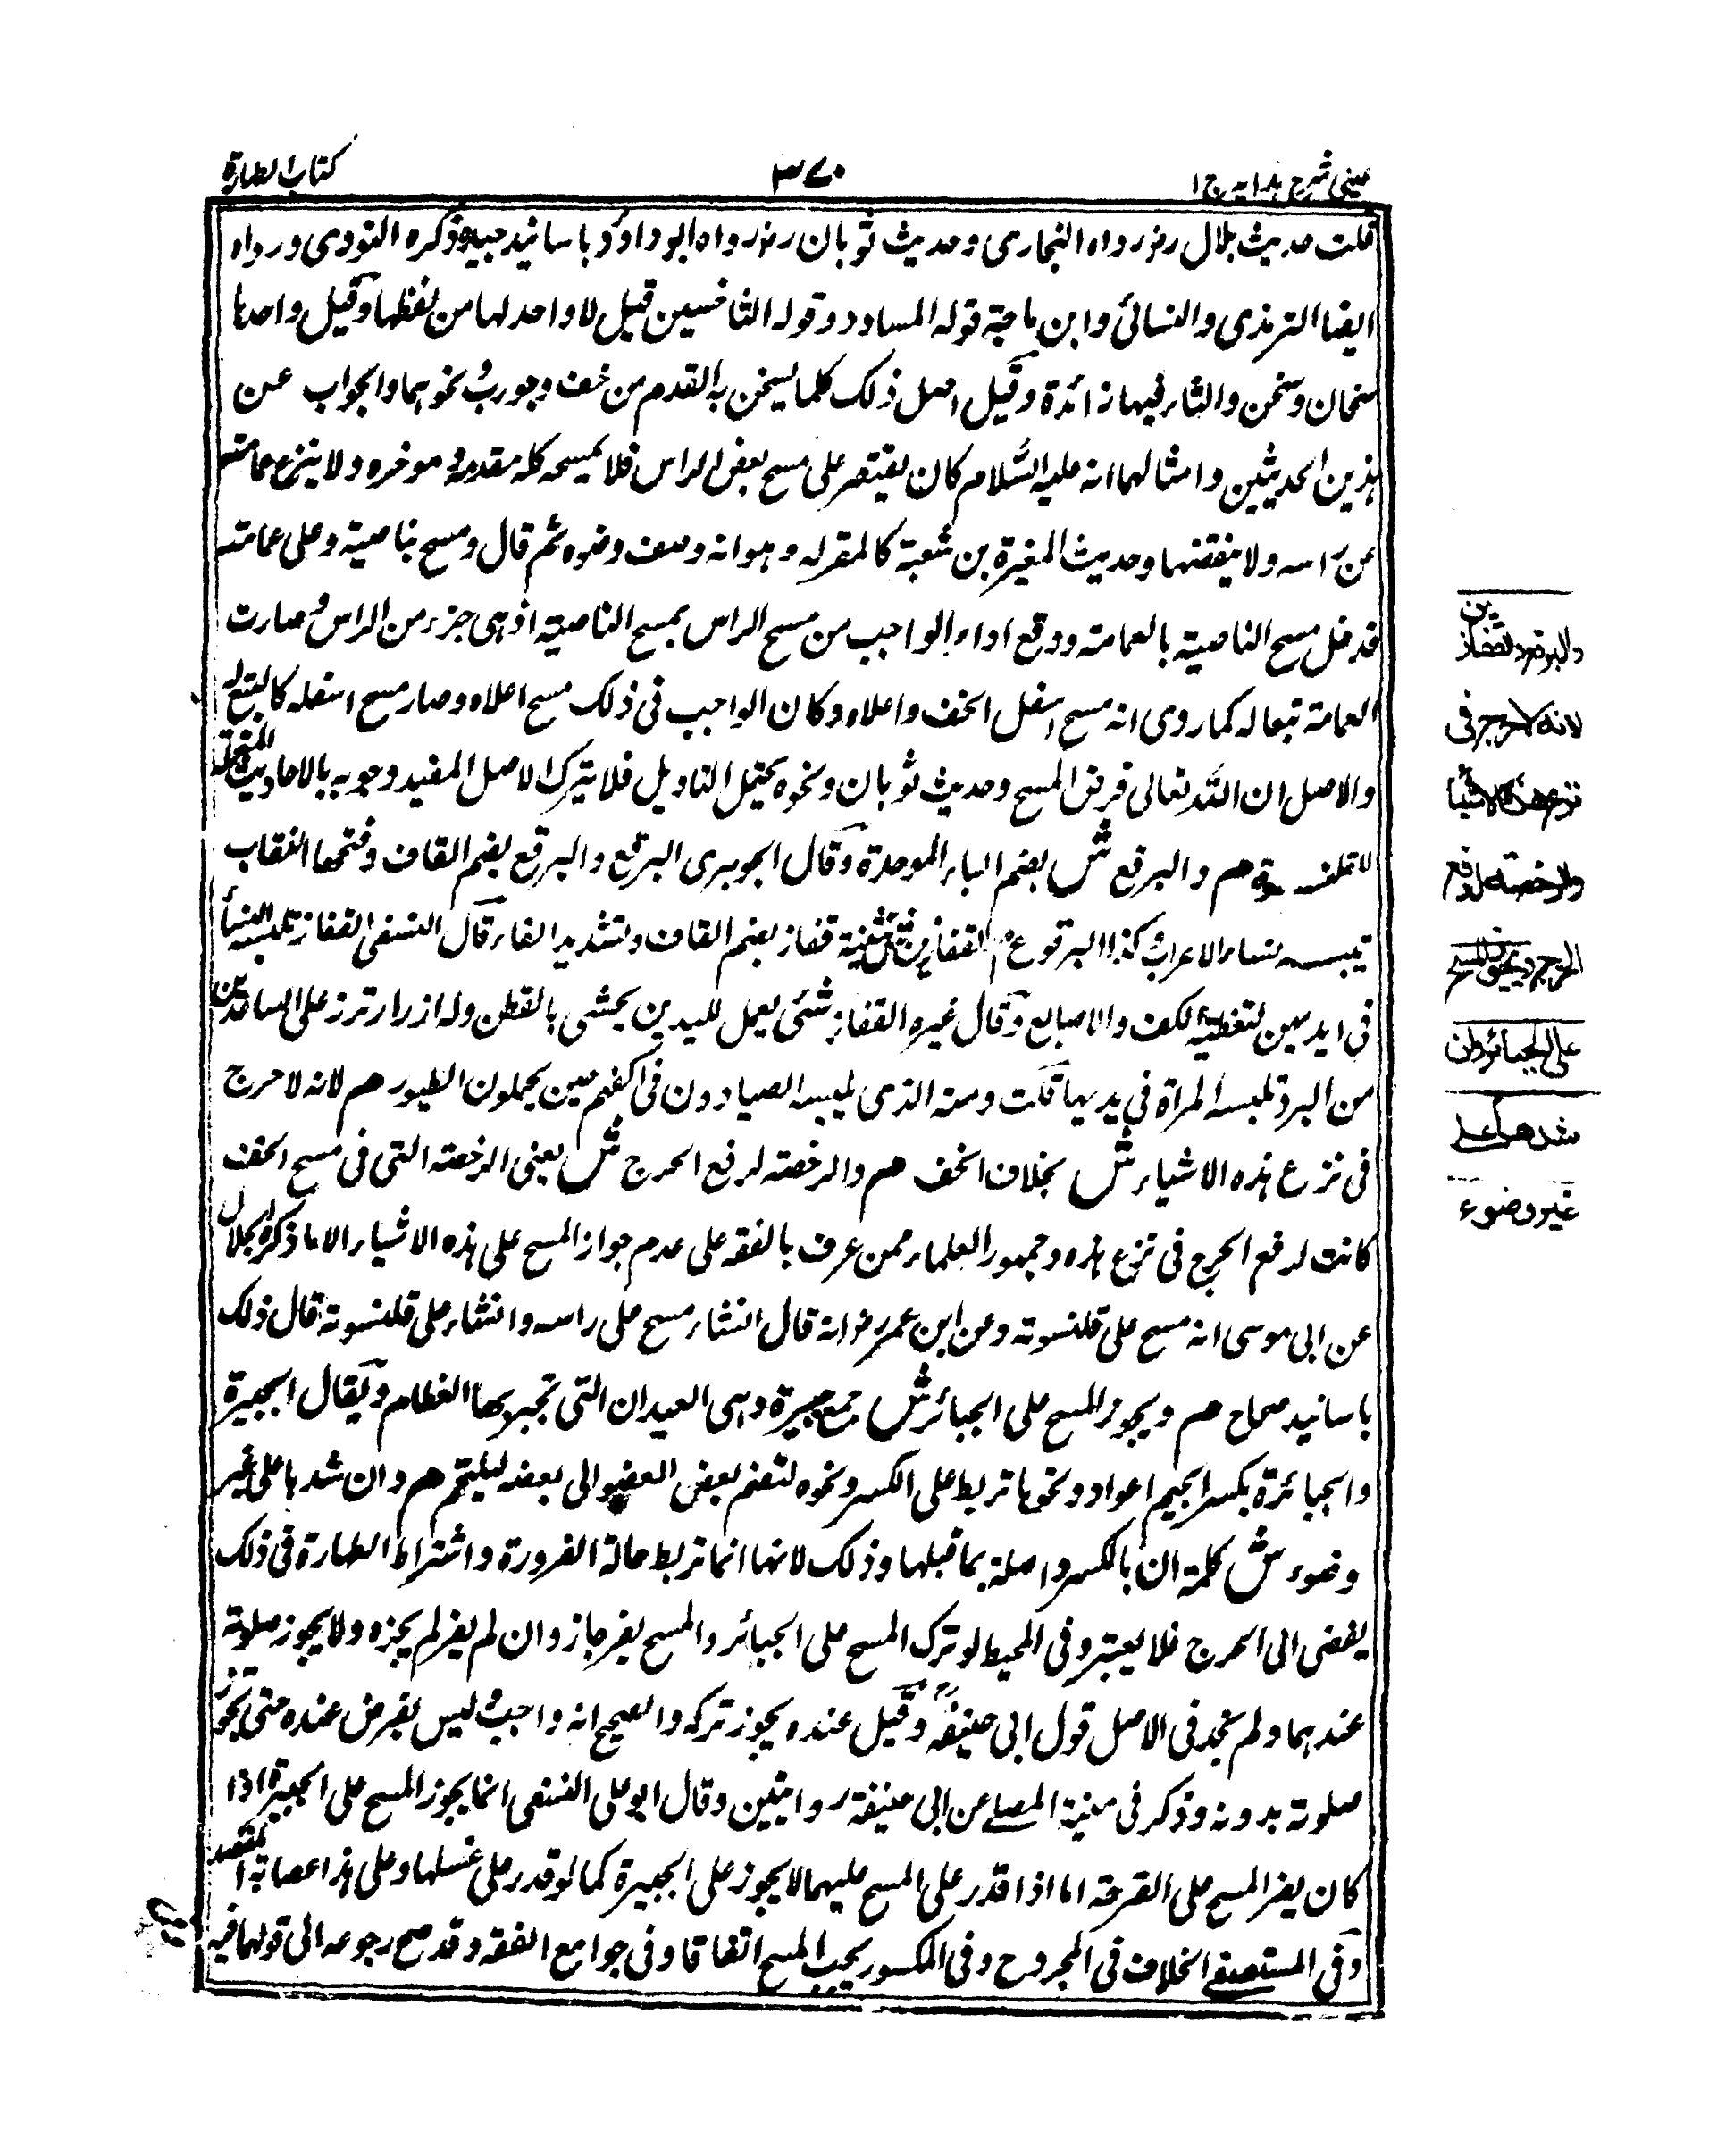 عینی شرح ہدایہ ج ۱
۳۷۰
کتاب الطہارة
قلت حدیث بلال رضہ رواه البخاری وحدیث ثوبان رضہ رواه ابو داؤد باسانید جیدة ذکره النووی ورواه
ایضا الترمذی والنسائی وابن ماجة قوله المساود وقوله التساخین قیل لا واحد لها من لفظها وقیل واحدها
سخان وسخن والتاء فیها زائدة وقیل اصل ذلک کلما یسخن به القدم من خف وجورب ونحوهما والجواب عن
هذین الحدیثین وامثالهما انه علیه السّلام کان یقتصر علی مسح بعض الراس فلا یمسحه کله مقدمه وموخره ولا ینزع عمامته
عن راسه ولا ینقضها وحدیث المغیرة بن شعبة کالمقر له وهو انه وصف وضوءه ثم قال ومسح بناصیته وعلی عمامته
فوصل مسح الناصیة بالعمامة ووقع اداء الواجب من مسح الراس بمسح الناصیة اذ هی جزء من الراس وصارت
العمامة تبعا له کما روی انه مسح اسفل الخف واعلاه وکان الواجب فی ذلک مسح اعلاه وصار مسح اسفله کالتبع له
والاصل ان اللّٰه تعالی فرض المسح وحدیث ثوبان ونحوه یحتمل التاویل فلا یترک الاصل المفید وجوبه بالاحادیث
هم والبرقع ش بضم الباء الموحدة وقال الجوهری البرقع والبرقع بضم القاف وفتحها النقاب
تلبسه نساء الاعراب وکذا البرقوع هم والقفازین ش تثنیة قفاز بضم القاف وتشدید الفاء قال النسفی القفاز تلبسه النساء
فی ایدیهن لتغطیة الکف والاصابع وقال غیره القفاز شئ یعمل للیدین یحشی بالقطن وله ازرار تزر علی الساعدین
من البرد تلبسه المرأة فی یدیها قلت ومنه الذی یلبسه الصیادون فی اکفهم حین یحملون الطیور هم لانه لا حرج
فی نزع هذه الاشیاء ش بخلاف الخف هم والرخصة لدفع الحرج ش یعنی الرخصة التی فی مسح الخف
کانت لدفع الحرج فی نزع هذه وجمهور العلماء ممن عرف بالفقه علی عدم جواز المسح علی هذه الاشیاء الا ما ذکره
عن ابی موسی انه مسح علی قلنسوته وعن ابن عمر رضہ انه قال ان شاء مسح علی راسه وان شاء علی قلنسوته قال ذلک
باسانید صحاح هم ویجوز المسح علی الجبائر ش جمع جبیرة وهی العیدان التی تجبر بها العظام ویقال الجبیرة
والجبائرة بکسر الجیم اعواد ونحوها تربط علی الکسر ونحوه لتضم بعض العضو الی بعضه لیلتحم هم وان شدها علی غیر
وضوء ش کلمة ان بالکسر واصلة بما قبلها وذلک لانها انما تربط حالة الضرورة واشتراط الطهارة فی ذلک
یفضی الی الحرج فلا یعتبر وفی المحیط لو ترک المسح علی الجبائر والمسح یضر جاز وان لم یضر لم یجزه ولا یجوز صلوته
عندهما ولم نجد فی الاصل قول ابی حنیفة وقیل عنده یجوز ترکه والصحیح انه واجب ولیس بفرض عنده حتی تجوز
صلوته بدونه وذکر فی منیة المصلے عن ابی حنیفة روایتین وقال ابو علی النسفی انما یجوز المسح علی الجبیرة اذا
کان یضر المسح علی القرحة اما اذا قدر علی المسح علیهما لا یجوز علی الجبیرة کما لو قدر علی غسلها وعلی هذا عصابة المفتصد
وفی المستصفے الخلاف فی المجروح وفی المکسور یجب المسح اتفاقا وفی جوامع الفقه وقد صح رجوعه الی قولهما فیه
والبرقع والقفازین
لانه لا حرج فی
نزع هذه الاشیاء
والرخصة لدفع
الحرج ویجوز المسح
علی الجبائر وان
شدها علے
غیر وضوء